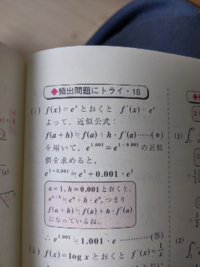 ◆頻出問題にトライ・18
(i) f(x)=eˣ とおくと f′(x)=eˣ
よって,近似公式:
f(a+h)≒f(a)+h・f′(a)……(*)
を用いて, e^1.001=e^1+0.001 の近似
値を求めると,
e^1+0.001≒e¹+0.001・e¹
a=1, h=0.001 とおくと,
つまり
f(a+h)≒f(a)+h・f′(a)
になっているね。
∴ e^1.001≒1.001・e ………(答)
f(x)=log x とおくと, f′(x)=1/x